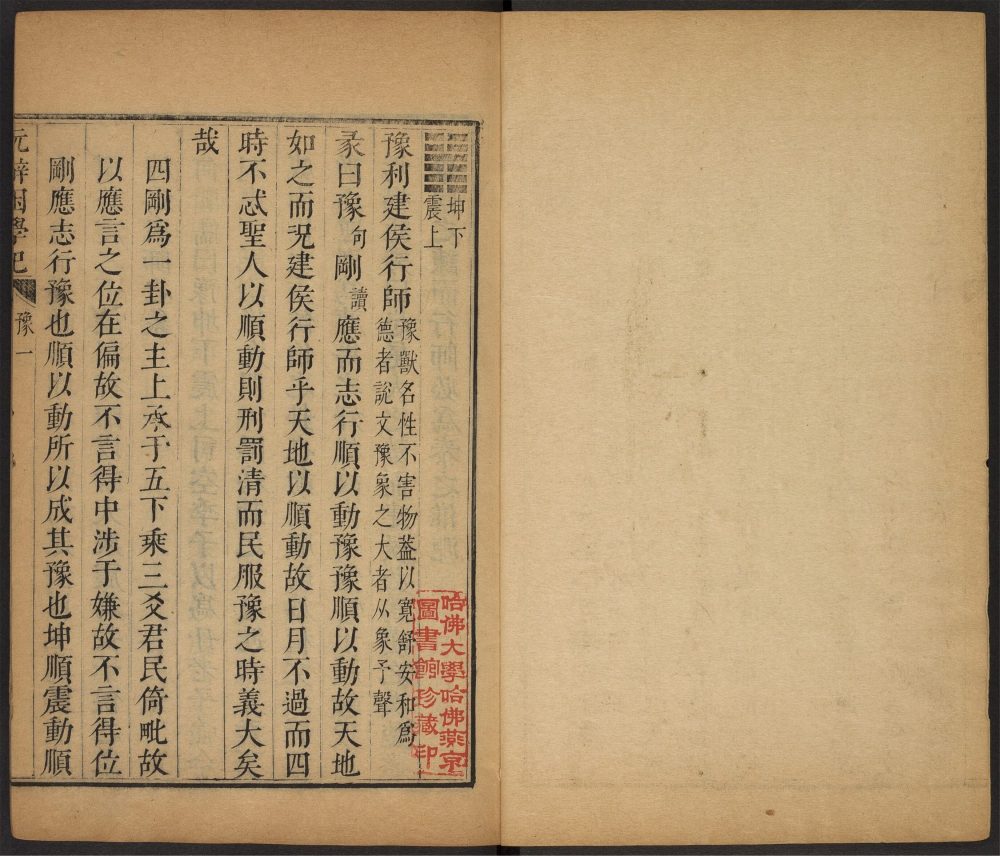 坤下
震上
豫利建侯行師豫獸名性不害物葢以寬舒安和爲
德者說文豫象之大者从象予聲
彖曰豫句剛讀應而志行順以動豫豫順以動故天地
如之而況建侯行師乎天地以順動故日月不過而四
時不忒聖人以順動則刑罰清而民服豫之時義大矣
哉
四剛爲一卦之主上承于五下乘三爻君民倚毗故
以應言之位在偏故不言得中涉于嫌故不言得位
剛應志行豫也順以動所以成其豫也坤順震動順
困學記 豫一
哈佛大學哈佛燕京
圖書館珍藏印